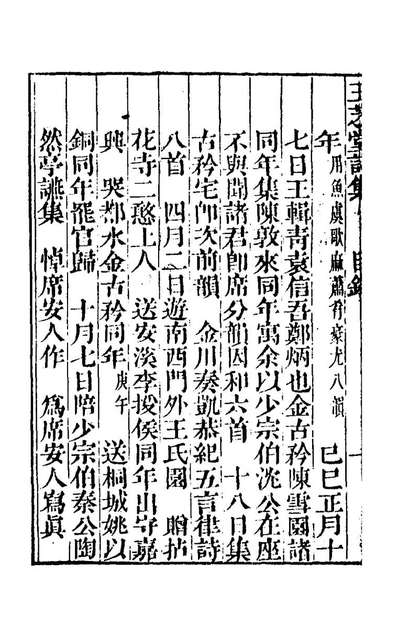 玉芝堂詩集 目錄
年用魚虞歌麻蕭肴豪尤八韻 己巳正月十
七日王輯青袁信吾鄭炳也金古矜陳雪園諸
同年集陳敦來同年寓余以少宗伯沈公在座
不與聞諸君卽席分韻因和六首 十八日集
古矜宅卽次前韻 金川奏凱恭紀五言律詩
八首 四月二日遊南西門外王氏園 贈拈
花寺二憨上人 送安溪李授侯同年出守嘉
興 哭都水金古矜同年庚午 送桐城姚以
銅同年罷官歸 十月七日陪少宗伯秦公陶
然亭讌集 悼席安人作 爲席安人寫眞